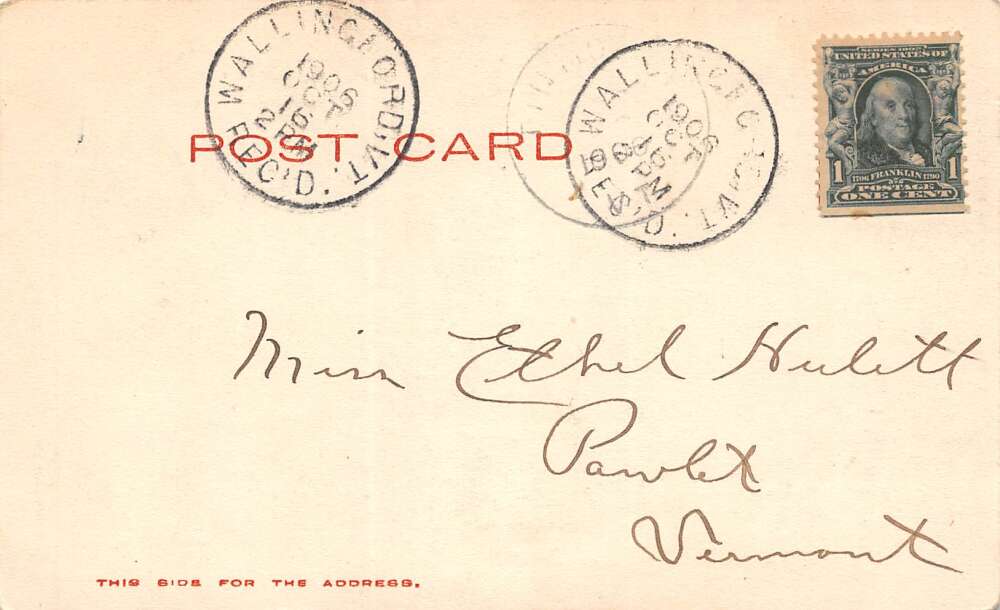 WALLINGFORD, VT.
1906
OCT
2 PM
REC'D.
WALLINGFORD, VT.
1906
OCT
PM
REC'D.
SERIES 1902
UNITED STATES OF
AMERICA
1 1
1706 FRANKLIN 1790
POSTAGE
ONE CENT
POST CARD
Miss Ethel Hulett
Pawlet
Vermont
THIS SIDE FOR THE ADDRESS.